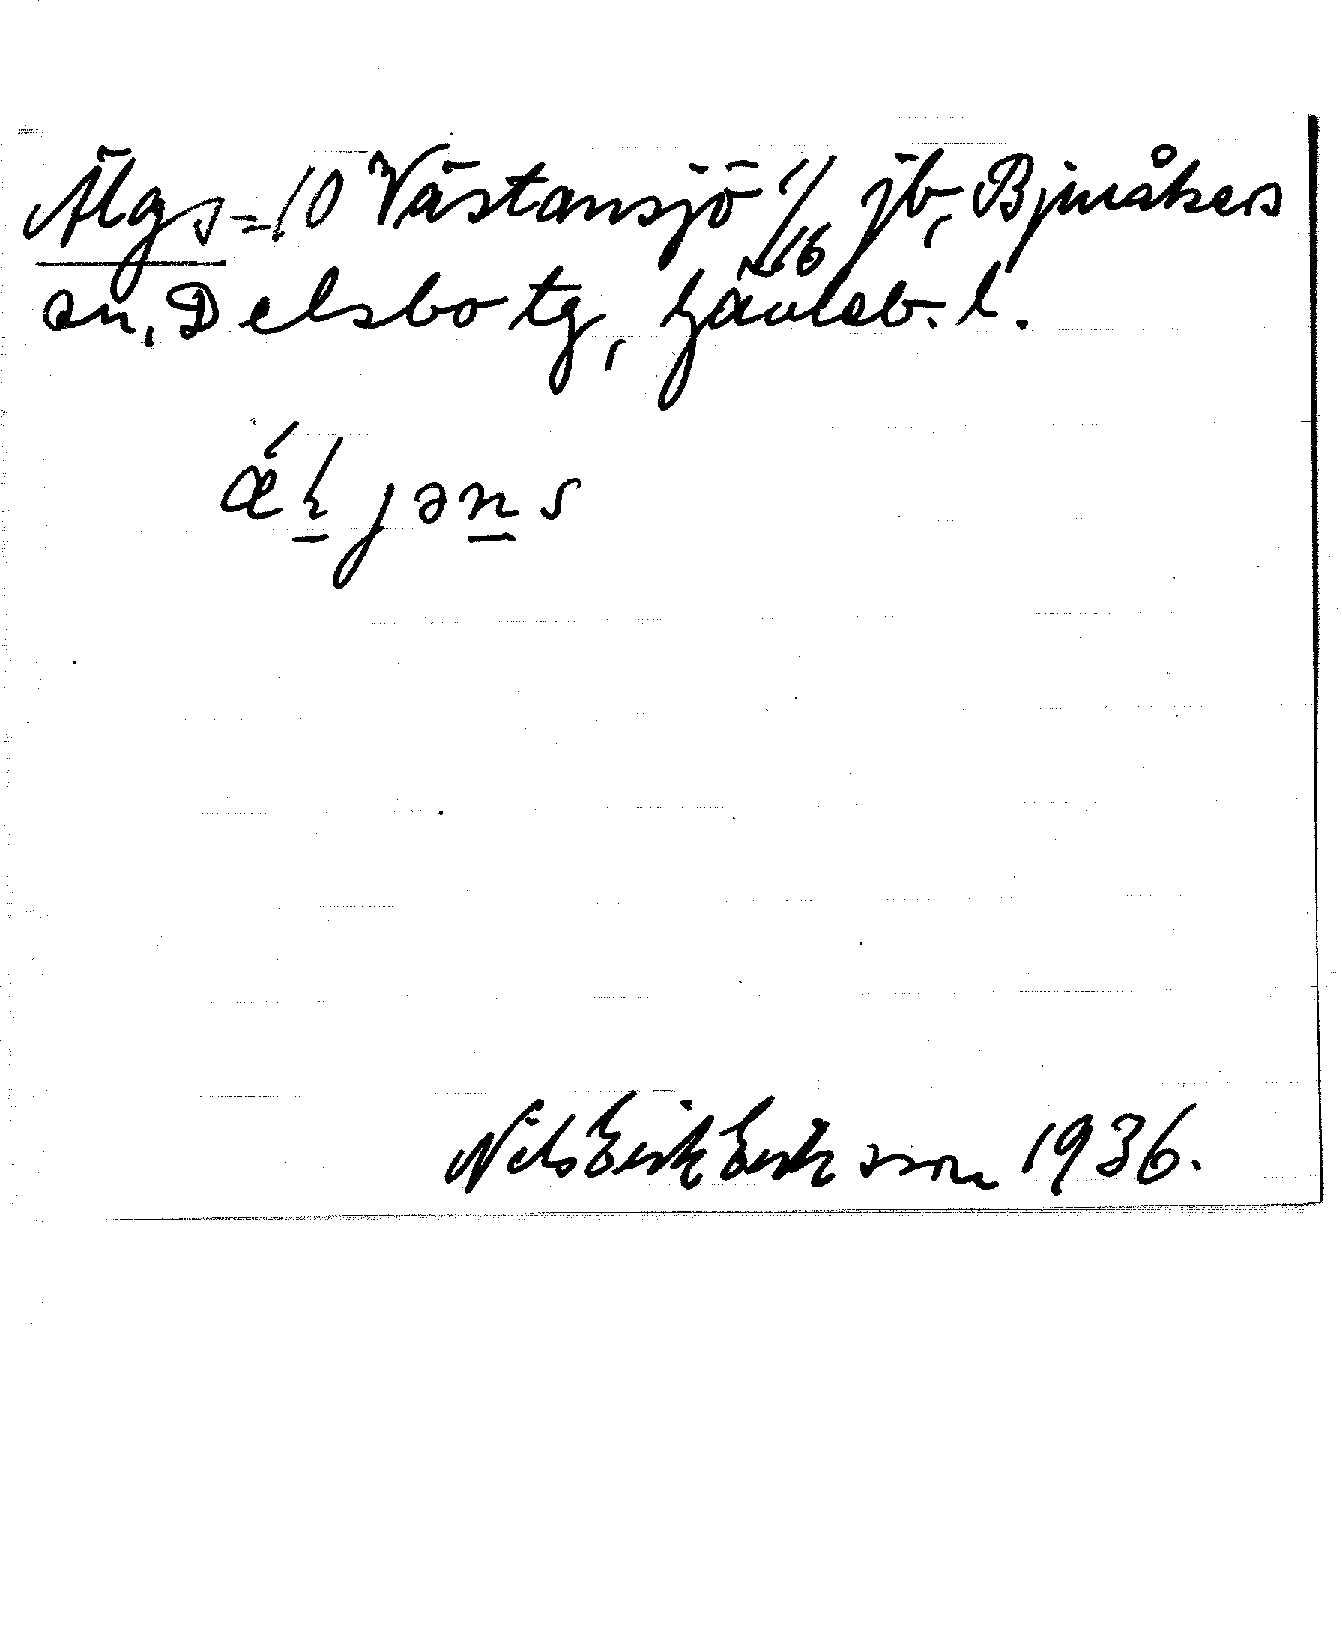 Älgs = 10 Västansjö 1/16 jb, Bjuråkers
sn, Delsbo tg, Gävleb. l.
ǽl̠jən̠s
Nils Erik Eriksson 1936.